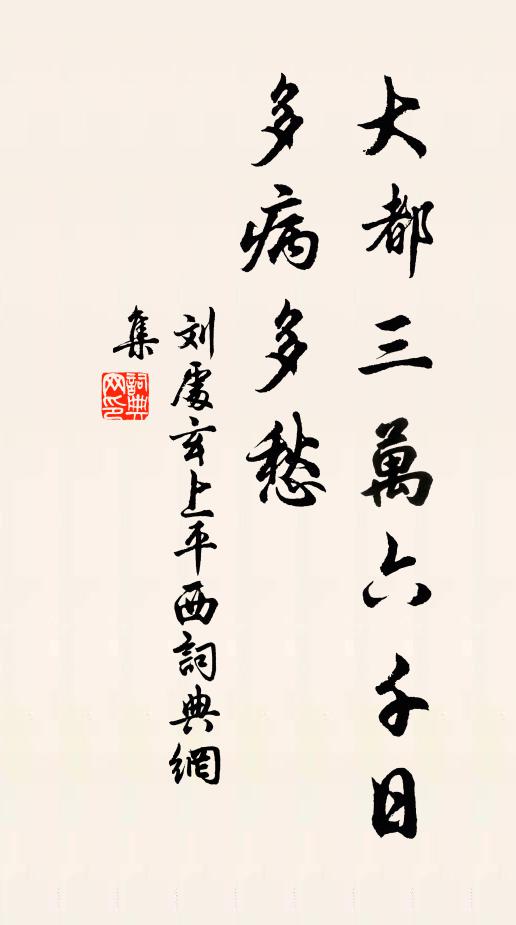 大都三萬六千日
多病多愁
刘處玄上平西詞典網
集
詞典
网印